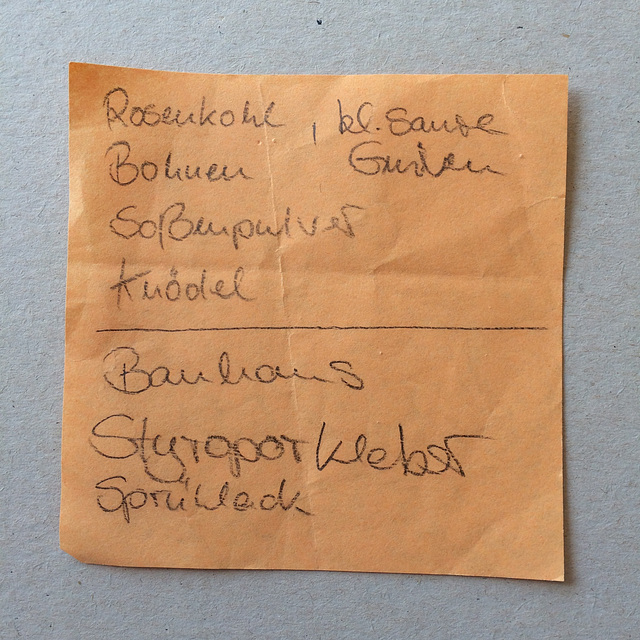 Rosenkohl , kl. Saure
Bohnen Gurken
Soßenpulver
Knödel
Bauhaus
Styroporkleber
Sprühlack